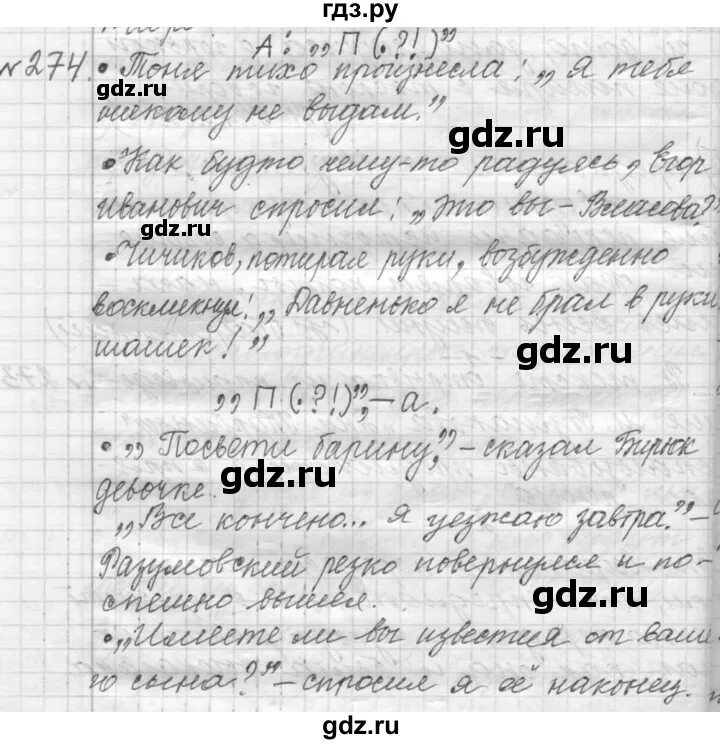 гдз.ру
А: „П (.?!)”
№274. • Тоня тихо произнесла: „Я тебя
никому не выдам.”
gdz.ru
• Как будто чему-то радуясь, Егор
Иванович спросил: „Это вы – Власова?”
gdz.ru
• Чичиков, потирая руки, возбужденно
воскликнул: „Давненько я не брал в руки
шашек!”
gdz.ru
„П (.?!)”, – а.
• „Посвети барину”, – сказал Бирюк
девочке.
gdz.ru
„Все кончено... Я уезжаю завтра.” –
Разумовский резко повернулся и по-
спешно вышел.
gdz.ru
• „Имеете ли вы известия от ваше-
го сына?” – спросил я её наконец.
gdz.ru